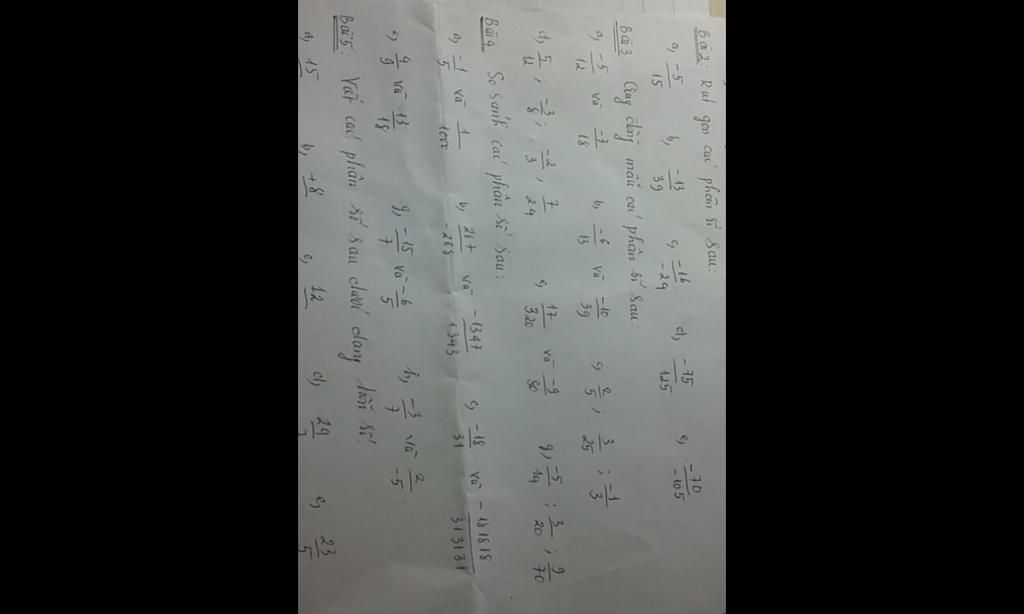 Bài 2: Rút gọn các phân số sau:
a, -5/15 b, -13/39 c, -16/-24 d, -75/125 e, -70/-105
Bài 3 Quy đồng mẫu các phân số sau:
a, -5/12 và -7/18 b, -6/13 và -10/39 c, 2/5 ; 3/25 ; -1/3
d, 5/12 ; -3/8 ; -2/3 ; 7/24 e, 17/320 và -9/80 g, -5/14 ; 3/20 ; 9/70
Bài 4 So sánh các phân số sau:
a, -1/5 và 1/1000 b, 267/-268 và -1347/1343 c, -18/31 và -181818/313131
e, 4/9 và 13/18 g, -15/7 và -6/5 h, -3/7 và 2/-5
Bài 5: Viết các phân số sau dưới dạng hỗn số.
a, 15 b, +8 c, 12 d, 29 e, 23/5